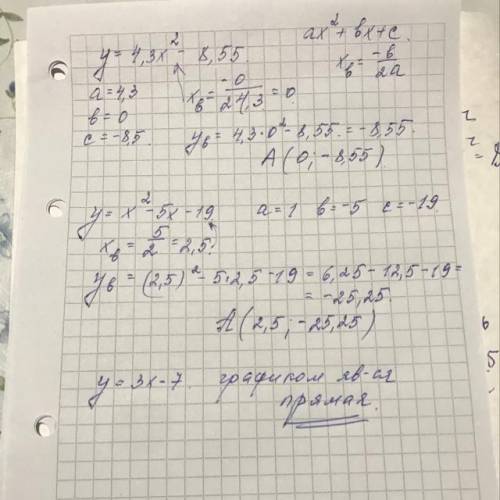 ax² + bx + c.
y = 4,3x² - 8,55
xв = -в/2a
a = 4,3
xв = -0/24,3 = 0.
в = 0
c = -8,5
yв = 4,3·0² - 8,55 = -8,55.
A(0; -8,55)
y = x² - 5x - 19 a = 1 в = -5 c = -19.
xв = 5/2 = 2,5.
yв = (2,5)² - 5·2,5 - 19 = 6,25 - 12,5 - 19 =
= -25,25.
A(2,5; -25,25)
y = 3x - 7. графиком яв-ся
прямая.